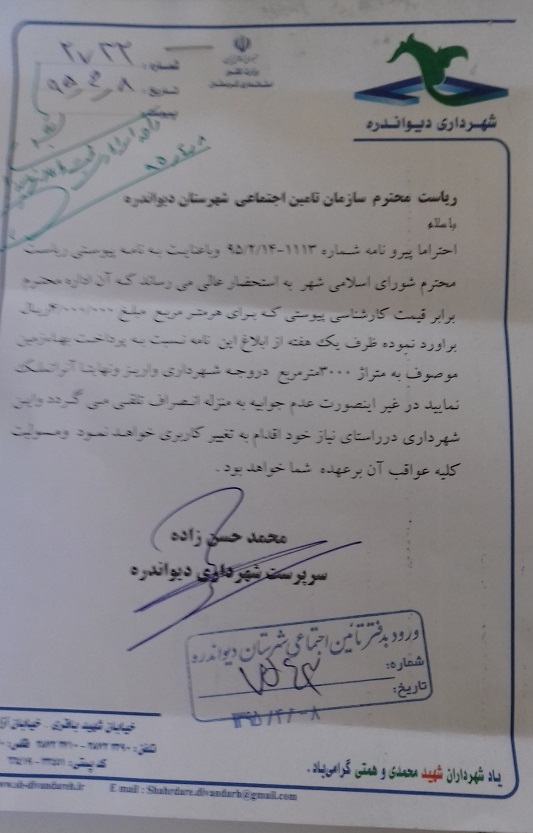 شماره: ۲۷۳۳
تاریخ: ۹۵,۴,۸
پیوست:
شهرداری دیواندره
ریاست محترم سازمان تامین اجتماعی شهرستان دیواندره
با سلام
احتراما پیرو نامه شماره ۱۱۱۳-۹۵/۲/۱۴ وباعنایت به نامه پیوستی ریاست
محترم شورای اسلامی شهر به استحضار عالی می رساند که آن اداره محترم
برابر قیمت کارشناسی پیوستی که برای هرمتر مربع مبلغ ۴/۰۰۰/۰۰۰ریال
براورد نموده ظرف یک هفته از ابلاغ این نامه نسبت به پرداخت بهاءزمین
موصوف به متراژ ۳۰۰۰مترمربع دروجه شهرداری واریز ونهایتا آنراتملک
نمایید در غیر اینصورت عدم جوابیه به منزله انصراف تلقی می گردد واین
شهرداری درراستای نیاز خود اقدام به تغییر کاربری خواهد نمود ومسولیت
کلیه عواقب آن برعهده شما خواهد بود .
محمد حسن زاده
سرپرست شهرداری دیواندره
ورود بدفتر تأمین اجتماعی شهرستان دیواندره
شماره:
تاریخ:
۱۳۹۵/۴/۰۸
خیابان شهید باقری - خیابان
تلفن:
کد پستی:
یاد شهرداران شهید محمدی و همتی گرامی باد .
E mail : Shahrdare.divandarh@gmail.com